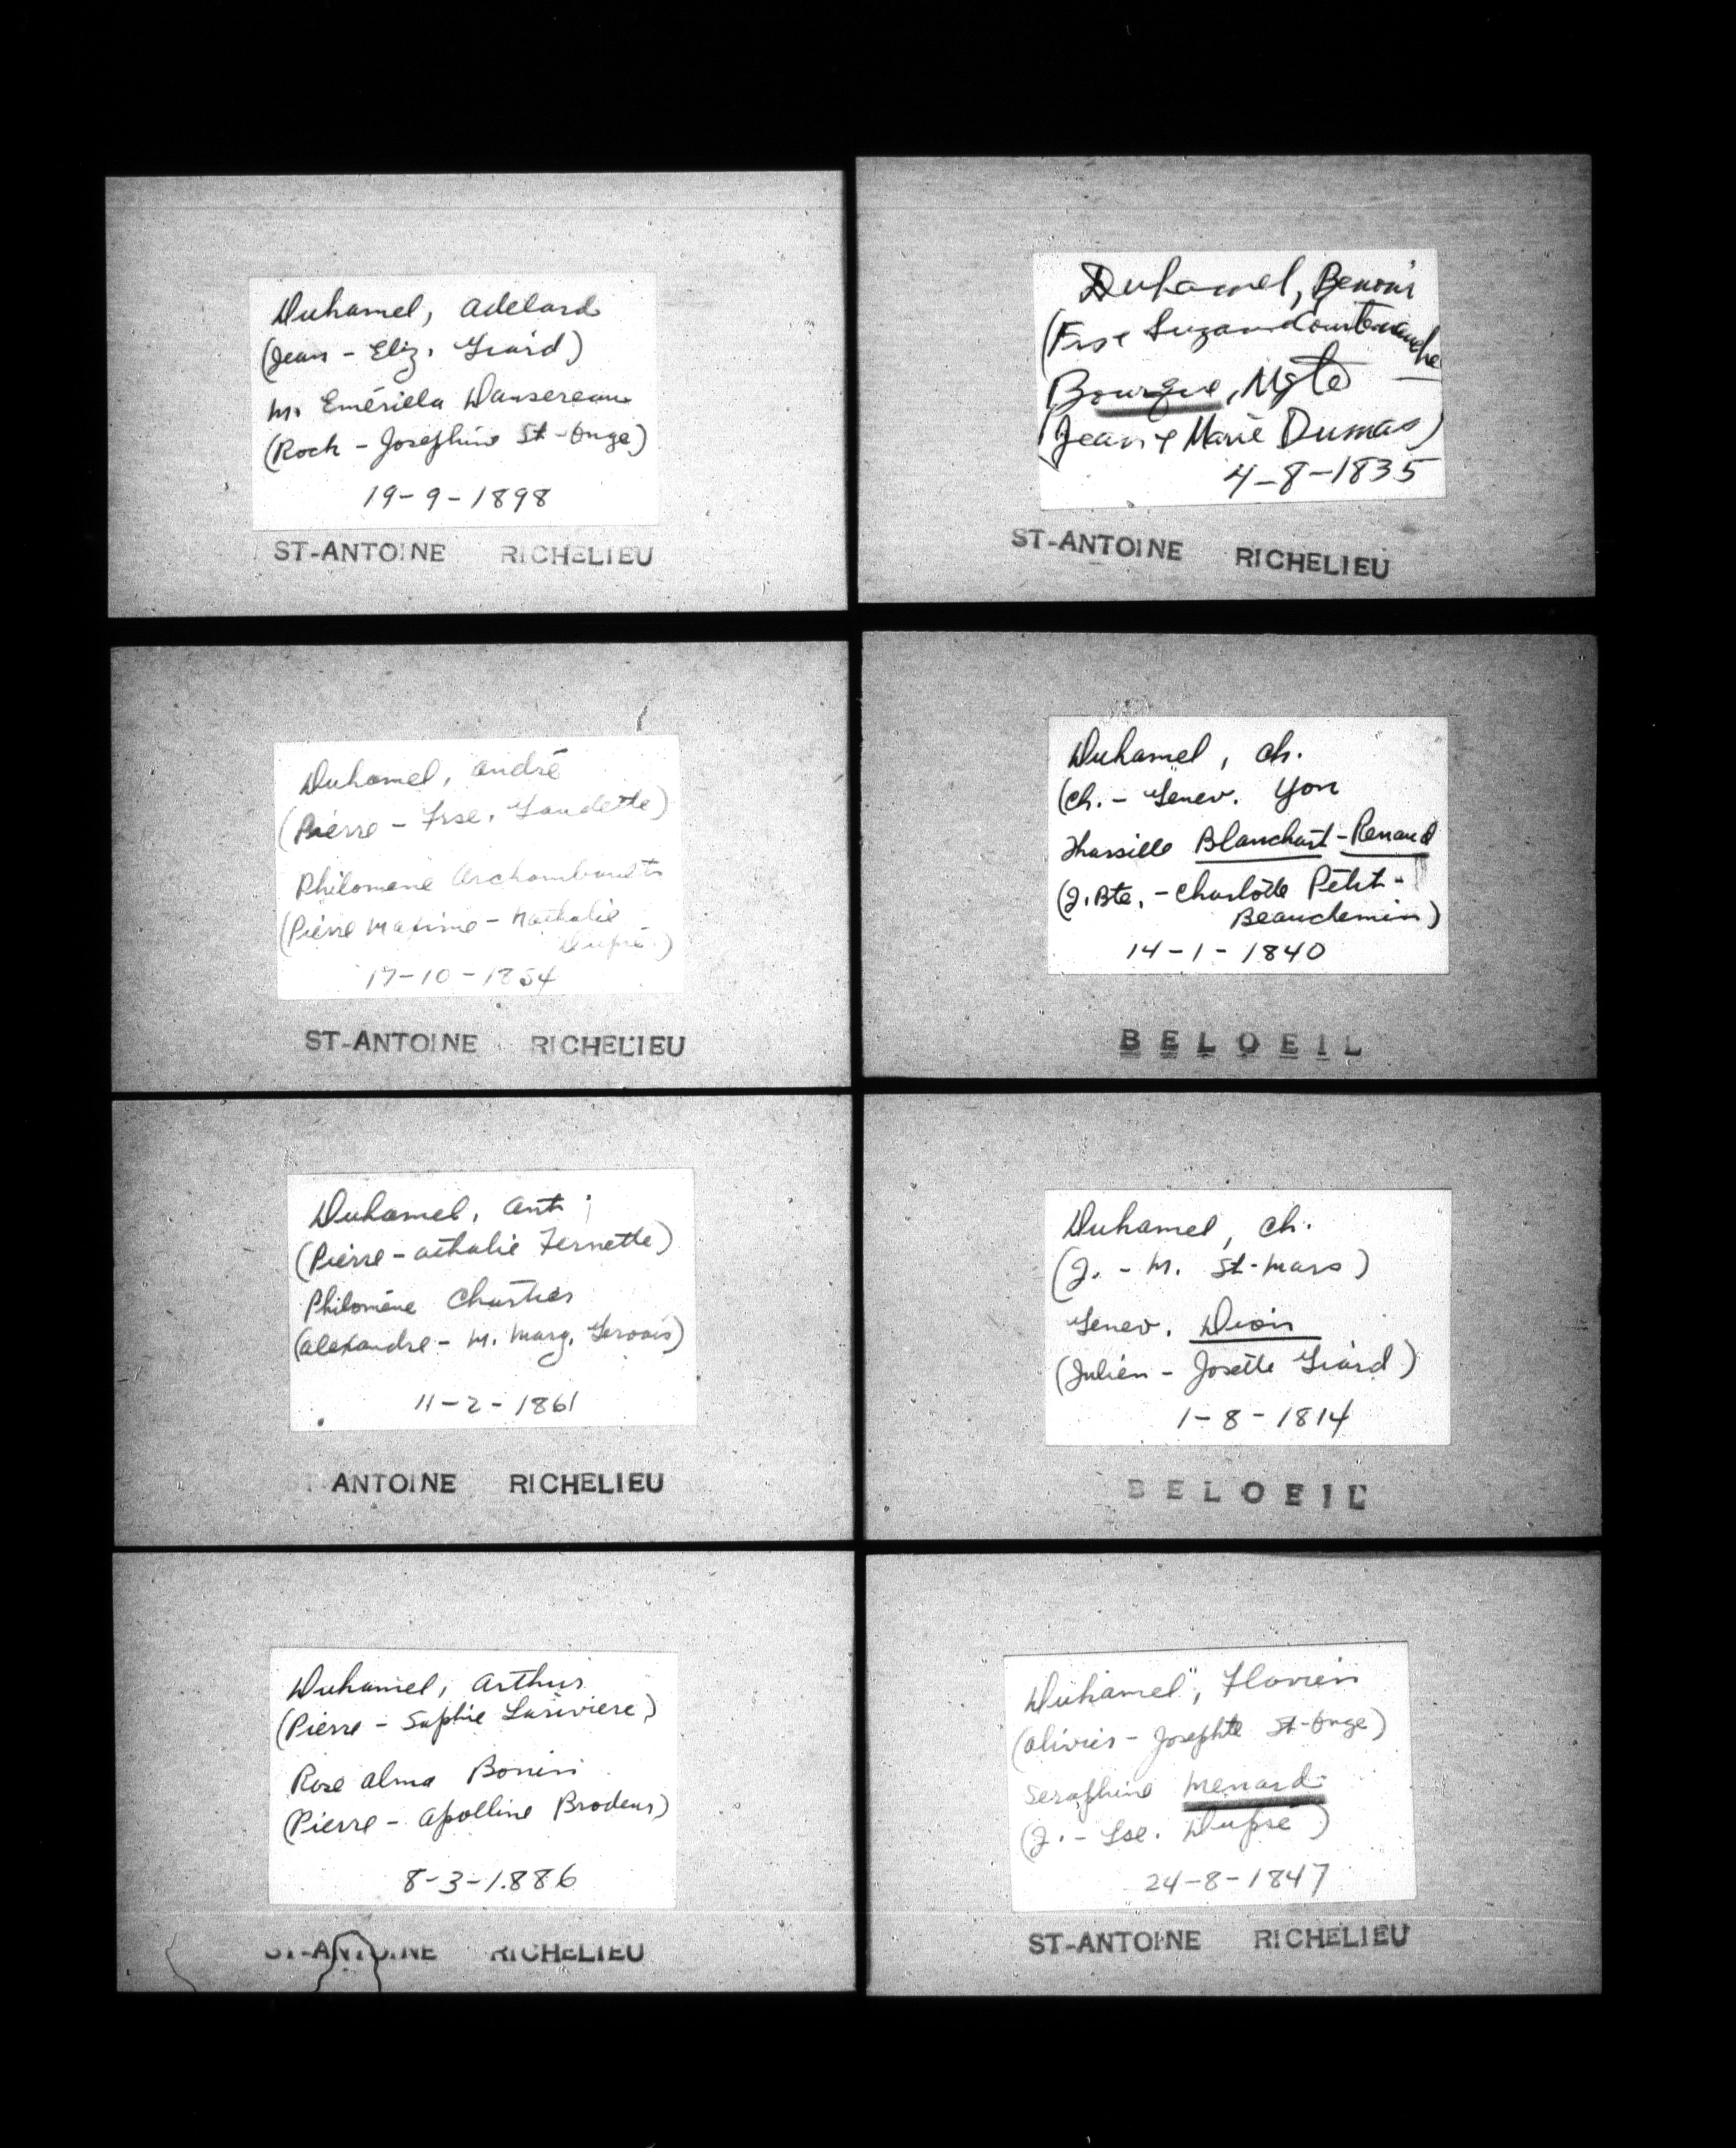 Duhamel, Adelard
(Jean - Eliz. Giard)
m. Emériela Dansereau
(Roch - Josephine St-Onge)
19-9-1898
ST-ANTOINE RICHELIEU
Duhamel, André
(Pierre - Frse. Gaudette)
Philomene Archambault
(Pierre Maxime - Nathalie
Dupré)
17-10-1854
ST-ANTOINE RICHELIEU
Duhamel, Ant
(Pierre - Athalie Fernette)
Philomène Chartier
(Alexandre - M. Marg. Gervais)
11-2-1861
ANTOINE RICHELIEU
Duhamel, Arthur
(Pierre - Sophie Lariviere)
Rose Alma Bonin
(Pierre - Apolline Brodeur)
8-3-1886
ST-ANTOINE RICHELIEU
Duhamel, Benoni
(Frs e Suzan Courtemanche
Bourque, Mgte
(Jean e Marie Dumas)
4-8-1835
ST-ANTOINE RICHELIEU
Duhamel, Ch.
(Ch. - Genev. Yon
Tharsille Blanchart-Renaud
(J. Bte. - Charlotte Petit-
Beauchemin)
14-1-1840
BELOEIL
Duhamel, Ch.
(J. - M. St-Mars)
Genev. Dion
(Julien - Josette Giard)
1-8-1814
BELOEIL
Duhamel, Flavien
(Olivier - Josephte St-Onge)
Seraphine Menard
(J. - Lse. Dupré)
24-8-1847
ST-ANTOINE RICHELIEU